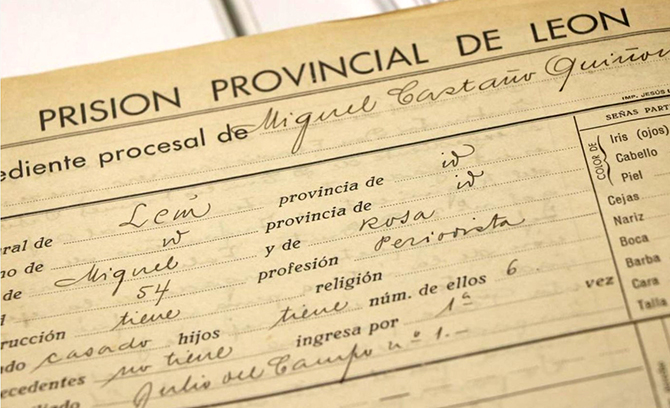 PRISION PROVINCIAL DE LEON
ediente procesal de Miguel Castaño Quiñon
IMP. JESÚS
eral de León provincia de id
no de id provincia de id
de Miguel y de Rosa
d 54 profesión Periodista
rucción tiene religión
do casado hijos tiene núm. de ellos 6
ecedentes no tiene ingresa por 1ª vez
iliado Julio del Campo nº 1.-
SEÑAS PART
COLOR DE
Iris (ojos)
Cabello
Piel
Cejas
Nariz
Boca
Barba
Cara
Talla